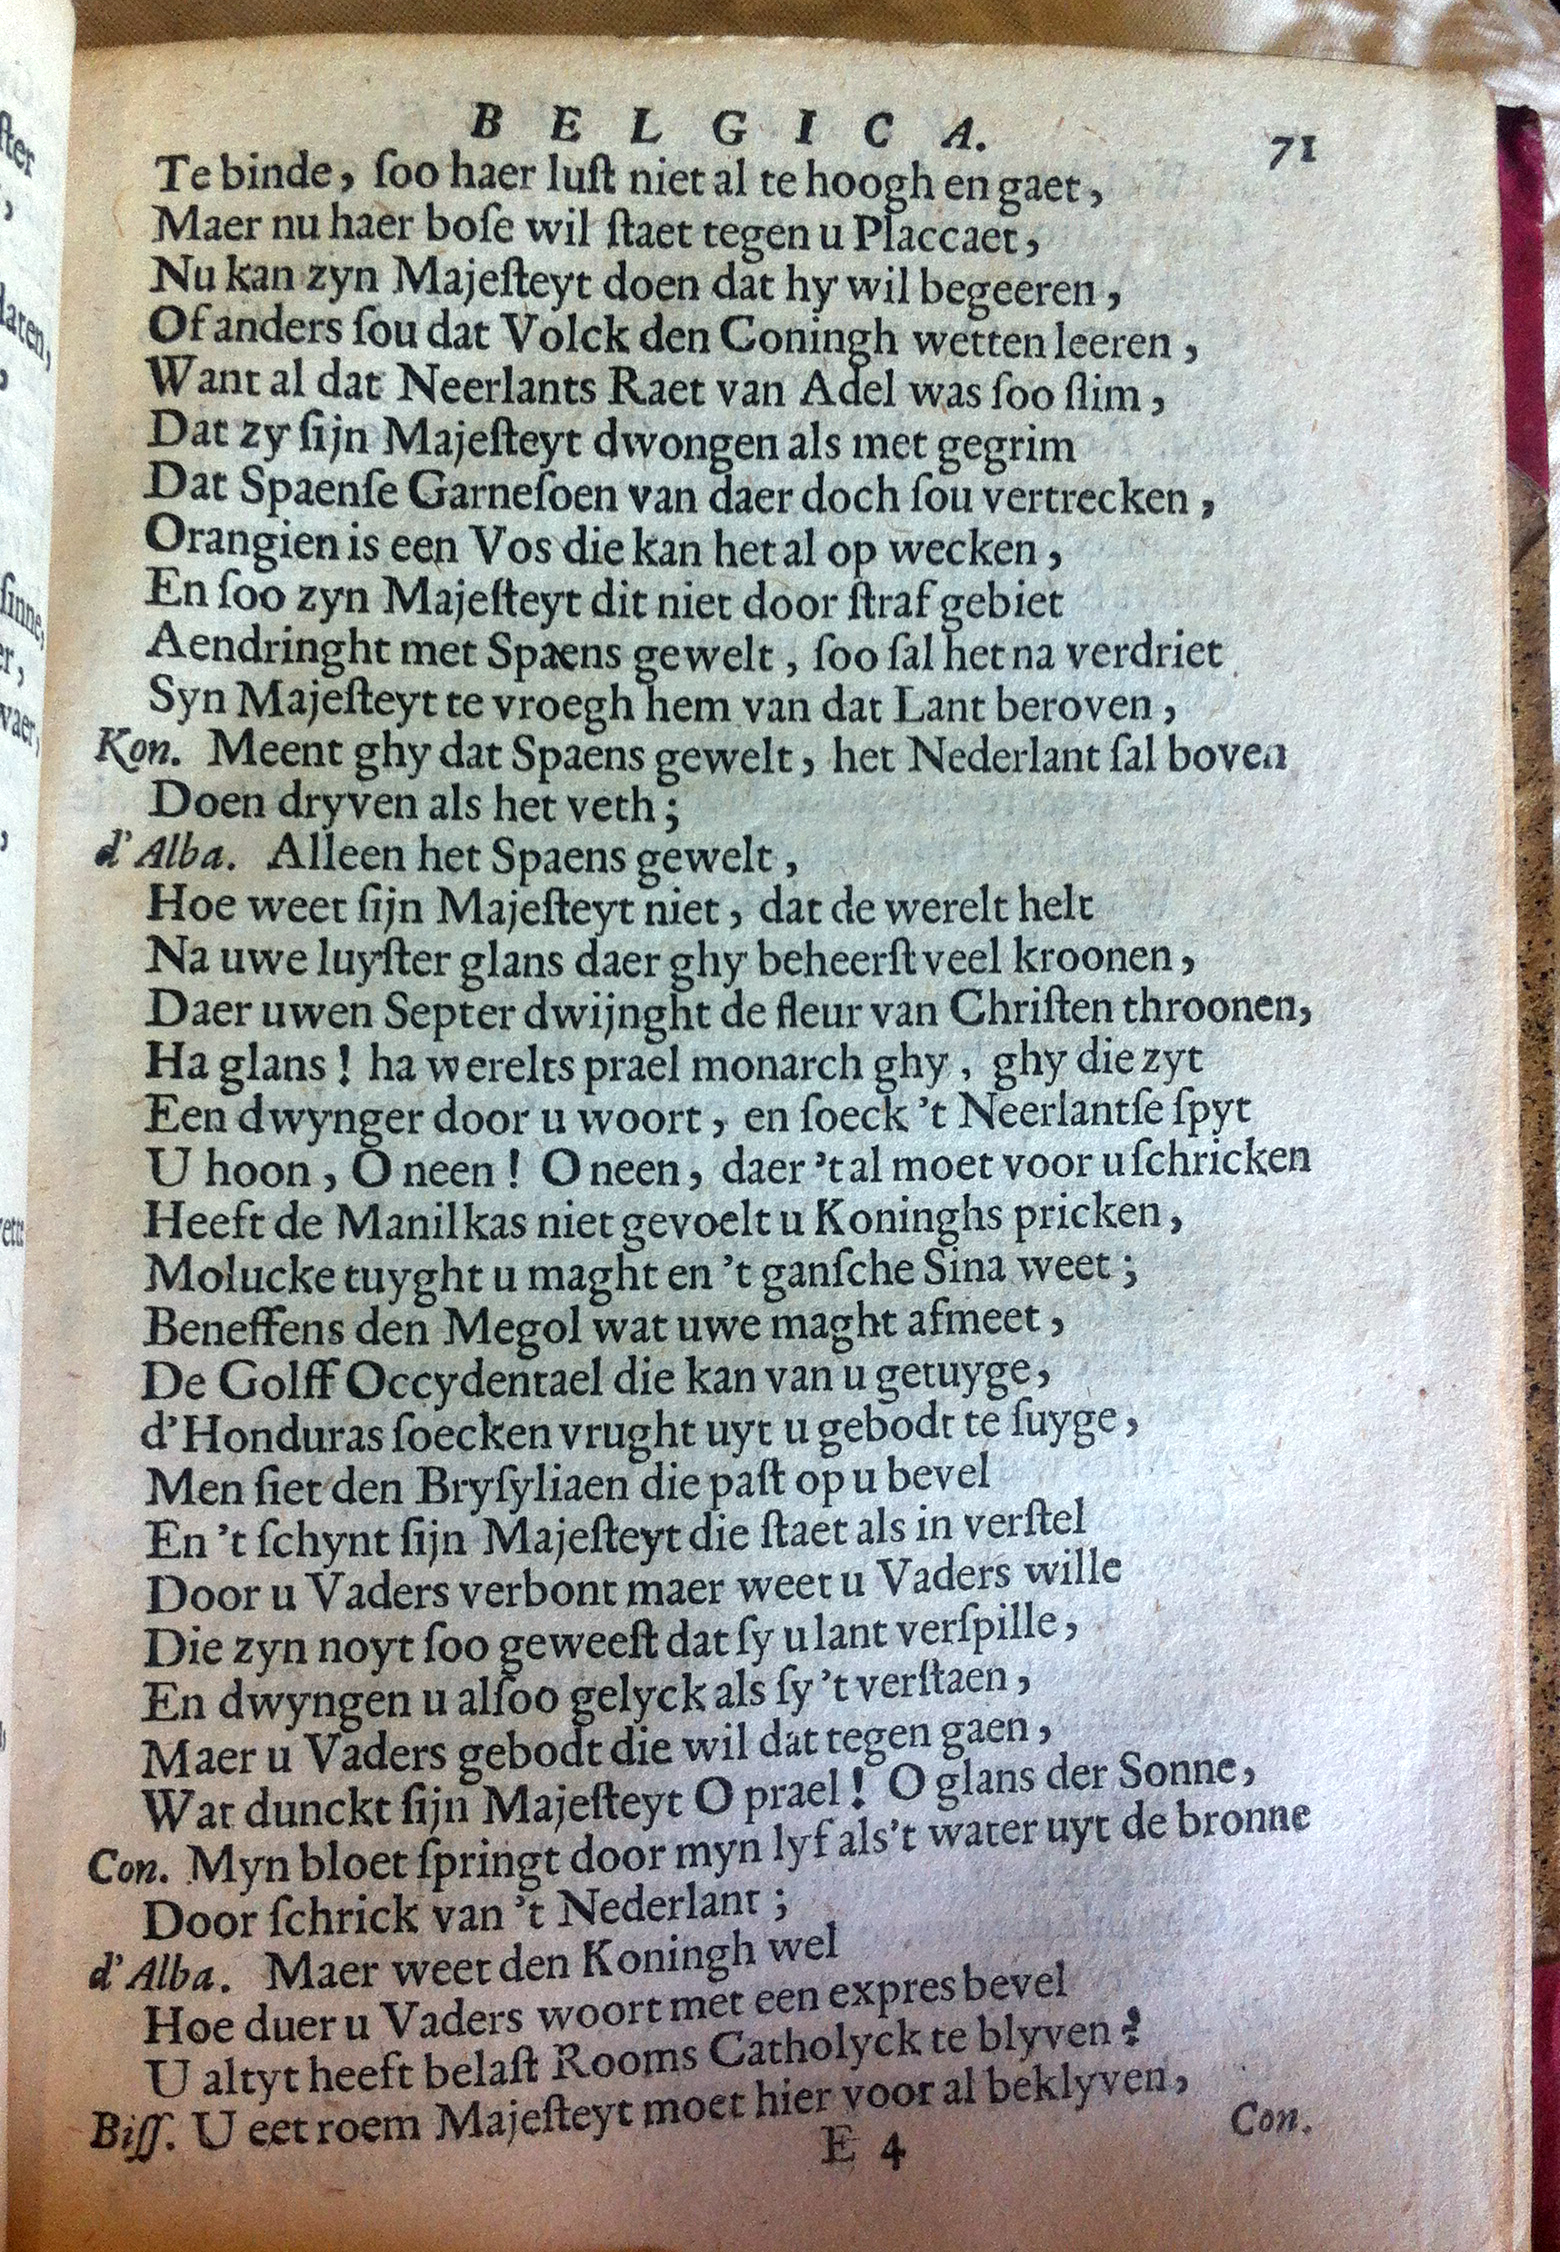 BELGICA. 71
Te binde, ſoo haer luſt niet al te hoogh en gaet,
Maer nu haer boſe wil ſtaet tegen u Placcaet,
Nu kan zyn Majeſteyt doen dat hy wil begeeren,
Of anders ſou dat Volck den Coningh wetten leeren,
Want al dat Neerlants Raet van Adel was ſoo ſlim,
Dat zy ſijn Majeſteyt dwongen als met gegrim
Dat Spaenſe Garneſoen van daer doch ſou vertrecken,
Orangien is een Vos die kan het al op wecken,
En ſoo zyn Majeſteyt dit niet door ſtraf gebiet
Aendringht met Spaens gewelt, ſoo ſal het na verdriet
Syn Majeſteyt te vroegh hem van dat Lant beroven,
Kon. Meent ghy dat Spaens gewelt, het Nederlant ſal boven
Doen dryven als het veth;
d'Alba. Alleen het Spaens gewelt,
Hoe weet ſijn Majeſteyt niet, dat de werelt helt
Na uwe luyſter glans daer ghy beheerſt veel kroonen,
Daer uwen Septer dwijnght de fleur van Chriſten throonen,
Ha glans! ha werelts prael monarch ghy, ghy die zyt
Een dwynger door u woort, en ſoeck 't Neerlantſe ſpyt
U hoon, O neen! O neen, daer 't al moet voor u ſchricken
Heeft de Manilkas niet gevoelt u Koninghs pricken,
Molucke tuyght u maght en 't ganſche Sina weet;
Beneffens den Megol wat uwe maght afmeet,
De Golff Occydentael die kan van u getuyge,
d'Honduras ſoecken vrught uyt u gebodt te ſuyge,
Men ſiet den Bryſyliaen die paſt op u bevel
En 't ſchynt ſijn Majeſteyt die ſtaet als in verſtel
Door u Vaders verbont maer weet u Vaders wille
Die zyn noyt ſoo geweeſt dat ſy u lant verſpille,
En dwyngen u alſoo gelyck als ſy 't verſtaen,
Maer u Vaders gebodt die wil dat tegen gaen,
Wat dunckt ſijn Majeſteyt O prael! O glans der Sonne,
Con. Myn bloet ſpringt door myn lyf als't water uyt de bronne
Door ſchrick van 't Nederlant;
d'Alba. Maer weet den Koningh wel
Hoe duer u Vaders woort met een expres bevel
U altyt heeft belaſt Rooms Catholyck te blyven?
Biſſ. U eet roem Majeſteyt moet hier voor al beklyven,
E 4 Con.